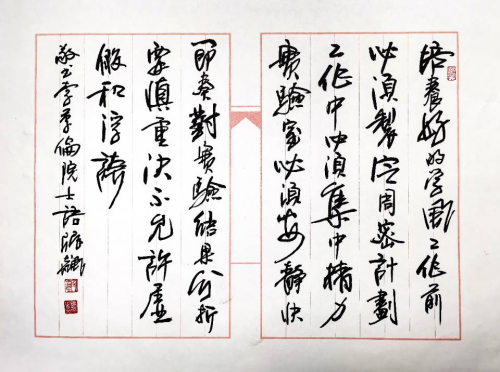 培養好的学風工作前
必須製定周密計劃
工作中必須集中精力
實驗室必須安静快
节奏對實驗結果分析
要慎重决不允許虛
假和浮誇
敬书李季倫院士語